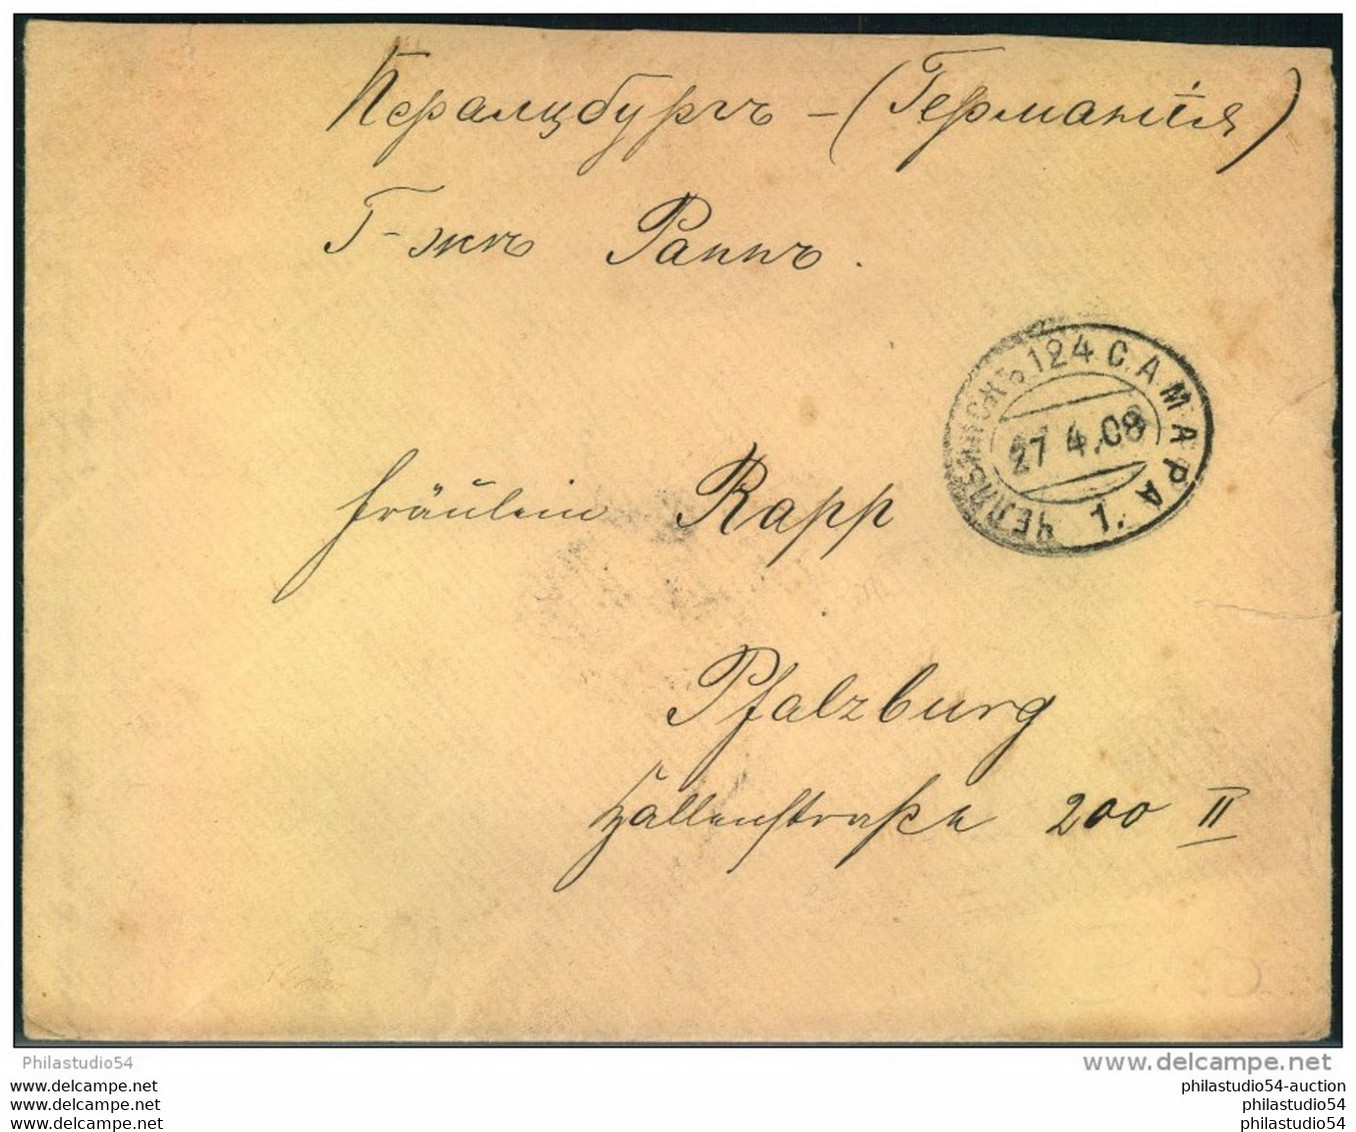 Пфалцбургъ – (Германія)
Г-жѣ Раппъ.
ЧЕЛЯБИНСКЪ 124 САМАРА
27 4.08
1.
Fräulein Rapp
Pfalzburg
200 II
Philastudio54
www.delcampe.net
www.delcampe.net
www.delcampe.net
www.delcampe.net
philastudio54-auction
philastudio54
philastudio54